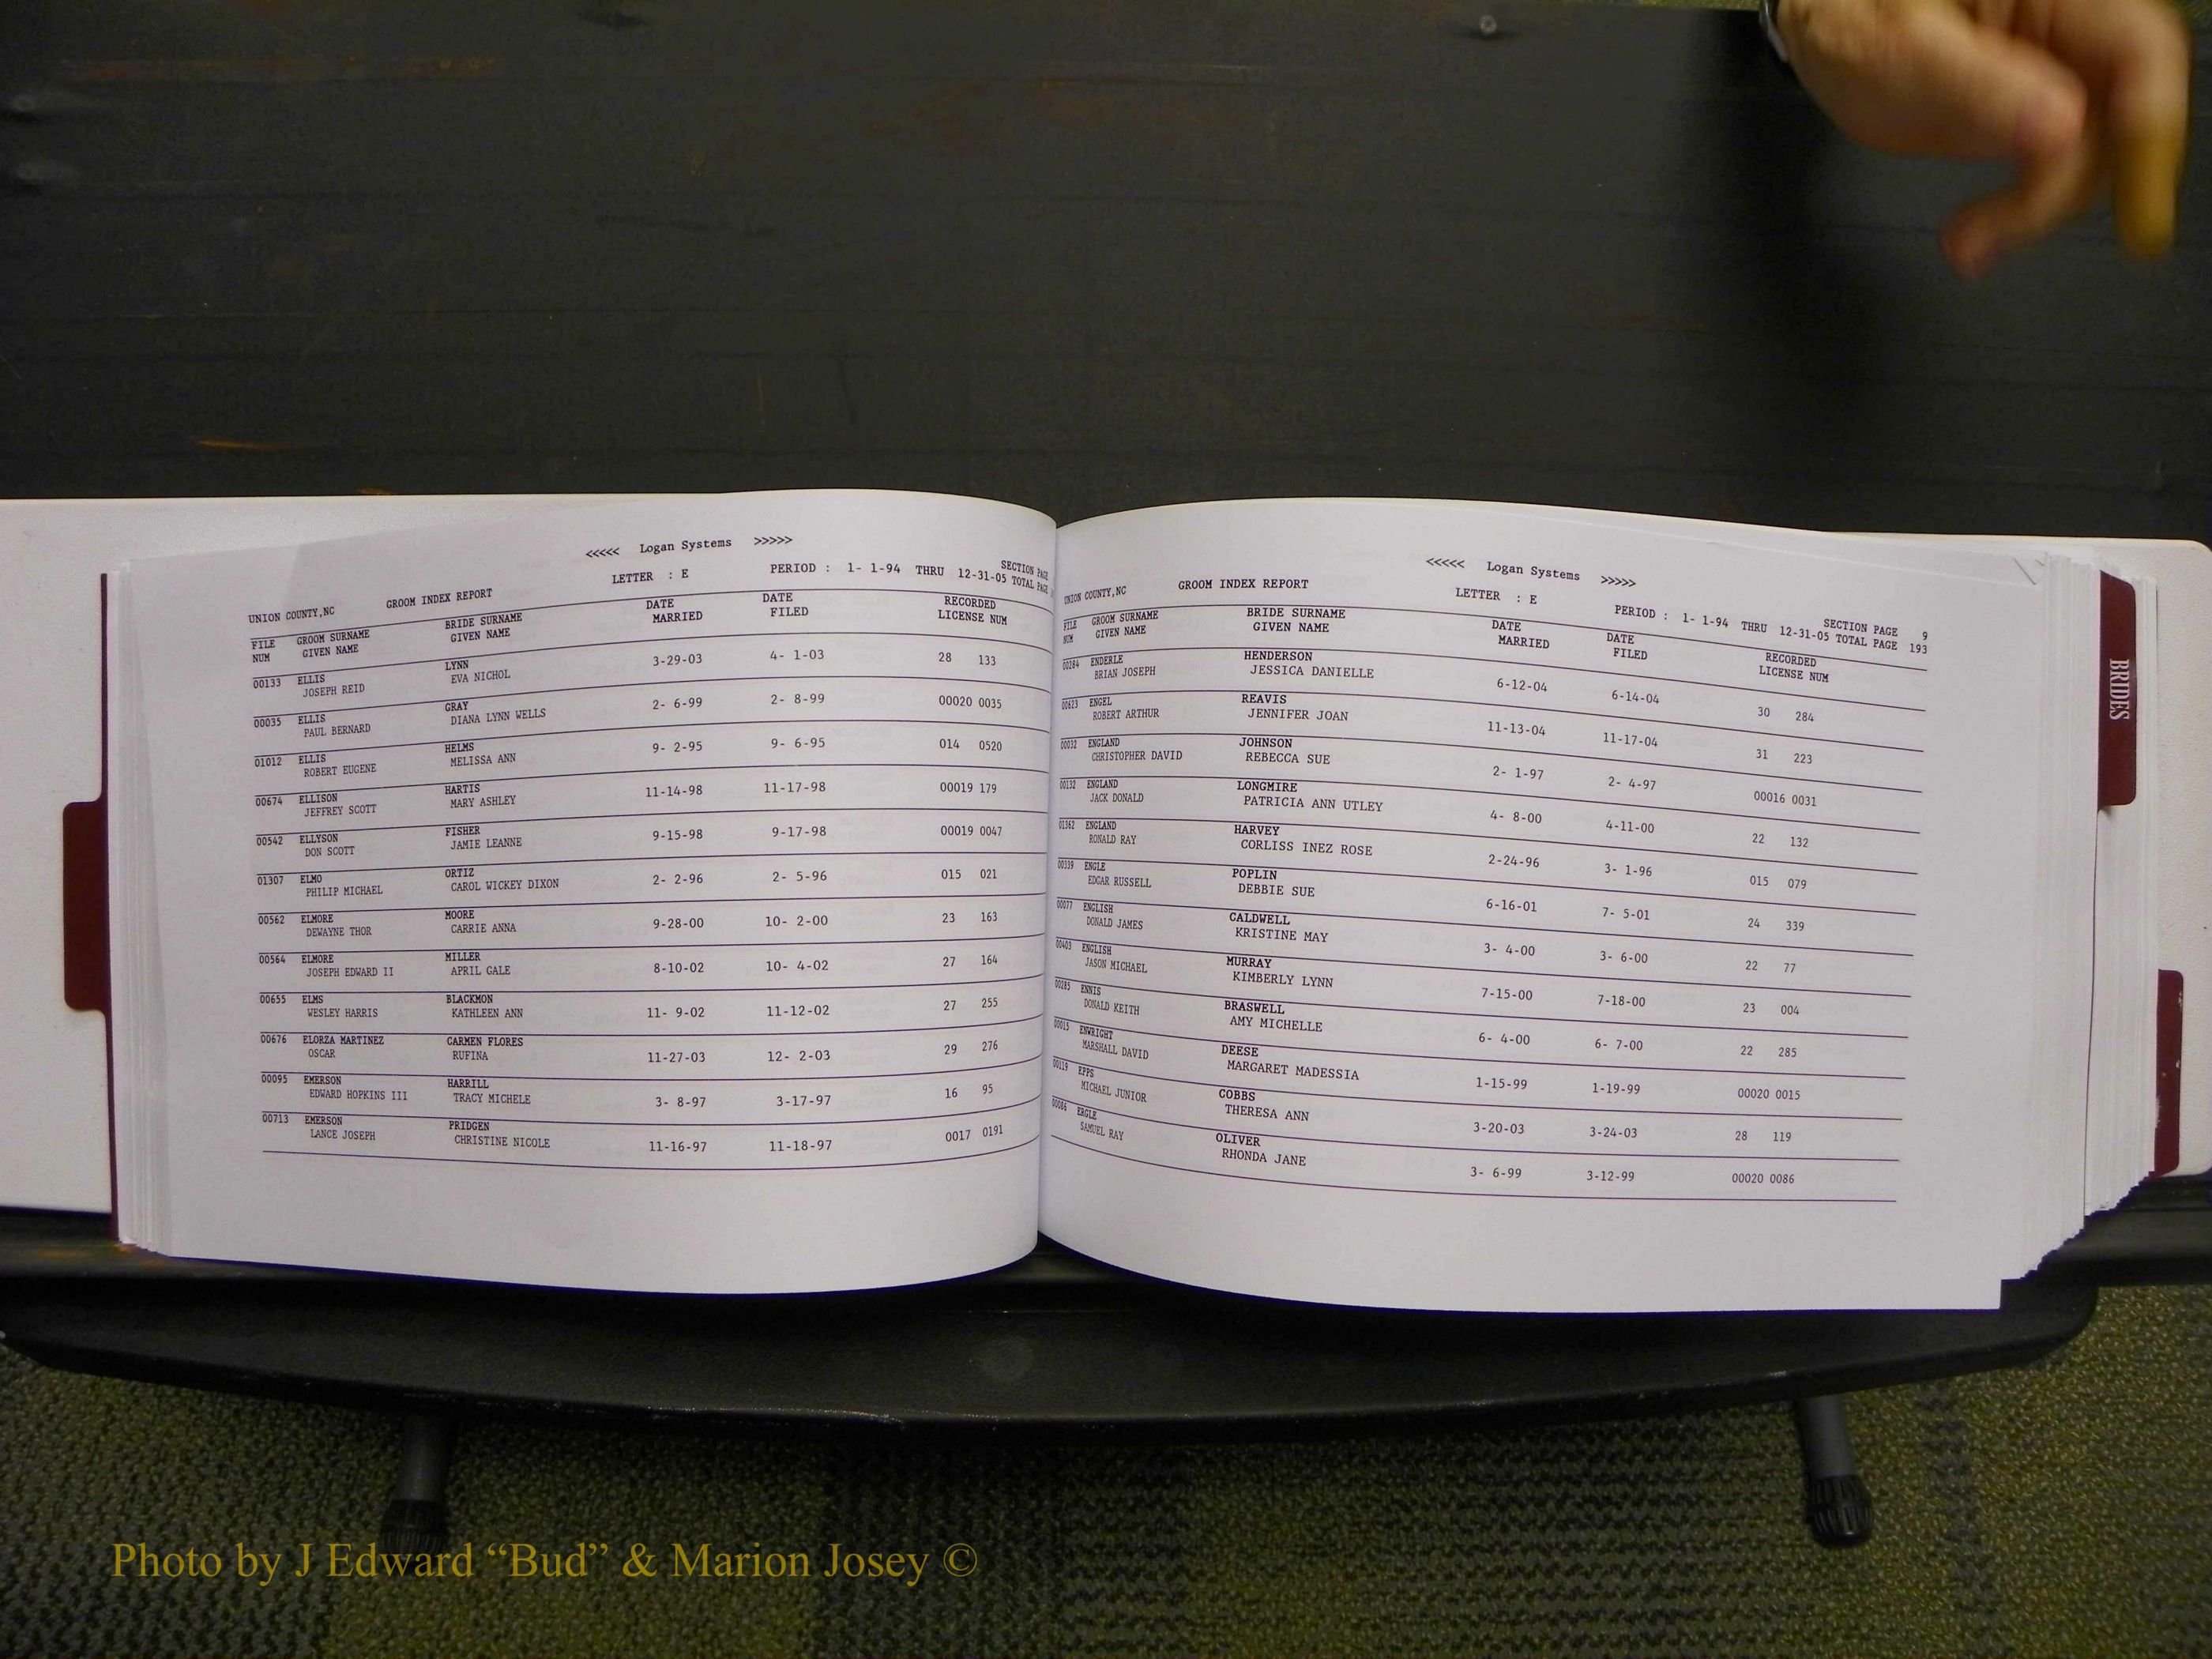 <<<<< Logan Systems >>>>>
UNION COUNTY,NC GROOM INDEX REPORT LETTER : E PERIOD : 1- 1-94 THRU 12-31-05 SECTION PAGE
TOTAL PAGE
FILE GROOM SURNAME BRIDE SURNAME DATE DATE RECORDED
NUM GIVEN NAME GIVEN NAME MARRIED FILED LICENSE NUM
00133 ELLIS LYNN 3-29-03 4- 1-03 28 133
JOSEPH REID EVA NICHOL
00035 ELLIS GRAY 2- 6-99 2- 8-99 00020 0035
PAUL BERNARD DIANA LYNN WELLS
01012 ELLIS HELMS 9- 2-95 9- 6-95 014 0520
ROBERT EUGENE MELISSA ANN
00674 ELLISON HARTIS 11-14-98 11-17-98 00019 179
JEFFREY SCOTT MARY ASHLEY
00542 ELLYSON FISHER 9-15-98 9-17-98 00019 0047
DON SCOTT JAMIE LEANNE
01307 ELMO ORTIZ 2- 2-96 2- 5-96 015 021
PHILIP MICHAEL CAROL WICKEY DIXON
00562 ELMORE MOORE 9-28-00 10- 2-00 23 163
DEWAYNE THOR CARRIE ANNA
00564 ELMORE MILLER 8-10-02 10- 4-02 27 164
JOSEPH EDWARD II APRIL GALE
00655 ELMS BLACKMON 11- 9-02 11-12-02 27 255
WESLEY HARRIS KATHLEEN ANN
00676 ELORZA MARTINEZ CARMEN FLORES 11-27-03 12- 2-03 29 276
OSCAR RUFINA
00095 EMERSON HARRILL 3- 8-97 3-17-97 16 95
EDWARD HOPKINS III TRACY MICHELE
00713 EMERSON PRIDGEN 11-16-97 11-18-97 0017 0191
LANCE JOSEPH CHRISTINE NICOLE
<<<<< Logan Systems >>>>>
UNION COUNTY,NC GROOM INDEX REPORT LETTER : E PERIOD : 1- 1-94 THRU 12-31-05 SECTION PAGE 9
TOTAL PAGE 193
FILE GROOM SURNAME BRIDE SURNAME DATE DATE RECORDED
NUM GIVEN NAME GIVEN NAME MARRIED FILED LICENSE NUM
00284 ENDERLE HENDERSON 6-12-04 6-14-04 30 284
BRIAN JOSEPH JESSICA DANIELLE
00623 ENGEL REAVIS 11-13-04 11-17-04 31 223
ROBERT ARTHUR JENNIFER JOAN
00032 ENGLAND JOHNSON 2- 1-97 2- 4-97 00016 0031
CHRISTOPHER DAVID REBECCA SUE
00132 ENGLAND LONGMIRE 4- 8-00 4-11-00 22 132
JACK DONALD PATRICIA ANN UTLEY
01362 ENGLAND HARVEY 2-24-96 3- 1-96 015 079
RONALD RAY CORLISS INEZ ROSE
00339 ENGLE POPLIN 6-16-01 7- 5-01 24 339
EDGAR RUSSELL DEBBIE SUE
00077 ENGLISH CALDWELL 3- 4-00 3- 6-00 22 77
DONALD JAMES KRISTINE MAY
00403 ENGLISH MURRAY 7-15-00 7-18-00 23 004
JASON MICHAEL KIMBERLY LYNN
00285 ENNIS BRASWELL 6- 4-00 6- 7-00 22 285
DONALD KEITH AMY MICHELLE
00015 ENWRIGHT DEESE 1-15-99 1-19-99 00020 0015
MARSHALL DAVID MARGARET MADESSIA
00119 EPPS COBBS 3-20-03 3-24-03 28 119
MICHAEL JUNIOR THERESA ANN
00086 ERGLE OLIVER 3- 6-99 3-12-99 00020 0086
SAMUEL RAY RHONDA JANE
BRIDES
Photo by J Edward “Bud” & Marion Josey ©